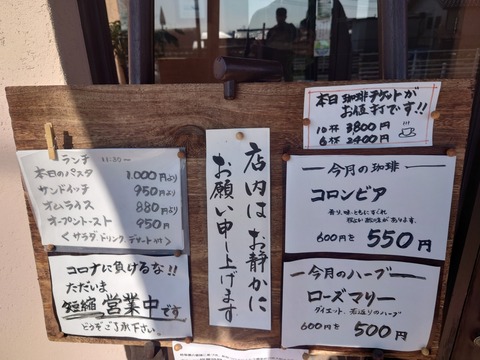 ランチ 11:30〜
本日のパスタ 1,000円より
サンドイッチ 950円より
オムライス 880円より
オープントースト 950円
〈サラダ ドリンク デザート付〉
コロナに負けるな!!
ただいま
短縮営業中です
どうぞご了承下さい。
店内はお静かに
お願い申し上げます
本日珈琲チケットが
お値打です!!
10杯 3800円
6杯 2400円
今月の珈琲
コロンビア
香り、味、ともにすぐれ
600円を 550円
今月のハーブ
ローズマリー
ダイエット、若返りのハーブ
600円を 500円